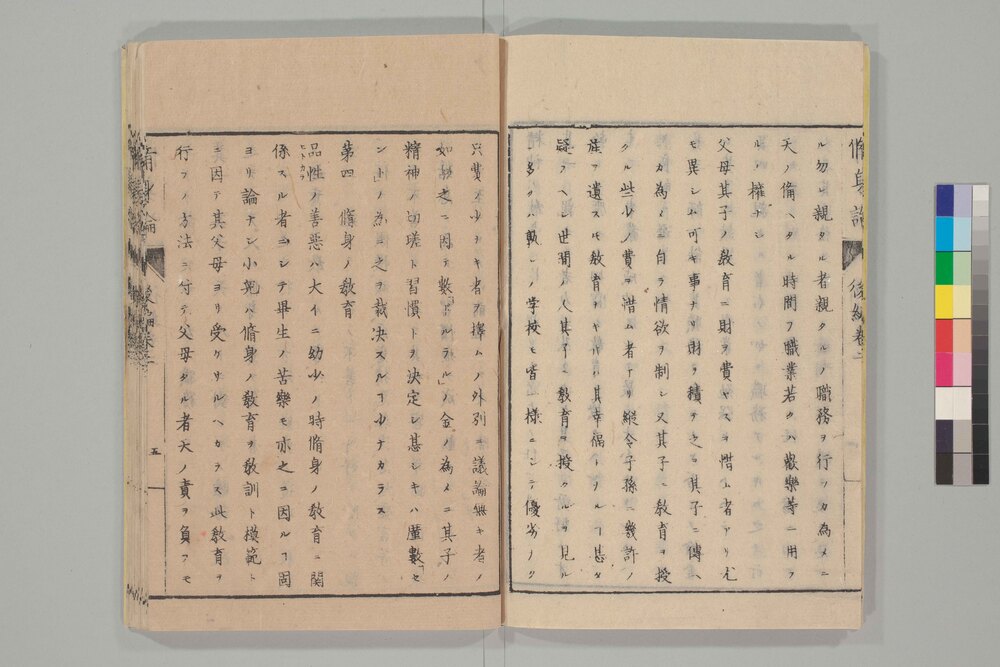 脩身論 後編卷二
ル勿レ親タル者親タルノ職務ヲ行フカ為メニ
天ノ備ヘタル時間ヲ職業若クハ歡樂等ニ用フ
ルノ權ナシ
父母其子ノ敎育ニ財ヲ費ヤスヲ惜ム者アリ尤
モ異シム可キ事ナリ財ヲ積テ之ヲ其子ニ傳ヘ
ンカ為メニ自ラ情欲ヲ制シ又其子ニ敎育ヲ授
クル些少ノ費ヲ惜ム者アリ縱令子孫ニ幾許ノ
産ヲ遺スモ敎育ナケレハ其幸福トナルヿ甚タ
疑フヘシ世間ノ人其子ニ敎育ヲ授クルヲ見ル
ニ多クハ孰レノ學校モ皆一樣ニシテ優劣ノク
只費ノ少ナキ者ヲ擇ムノ外別ニ議論無キ者ノ
如シ之ニ因テ數「ドルラル」ノ金ノ為メニ其子ノ
精神ノ切瑳ト習慣トヲ決定シ甚シキハ厪數「セ
ント」ノ為ニ之ヲ裁決スルヿ少ナカラス
第四 脩身ノ敎育
品性ノ善惡ハ大イニ幼少ノ時脩身ノ敎育ニ關
ヒトカラ
係スル者ニシテ畢生ノ苦樂モ亦之ニ因ルヿ固
ヨリ論ナシ小兒ハ脩身ノ敎育ヲ敎訓ト模範ト
ニ因テ其父母ヨリ受ケサルヘカラス此敎育ヲ
行フノ方法ニ付テ父母タル者天ノ責ヲ負フモ
脩身論
五